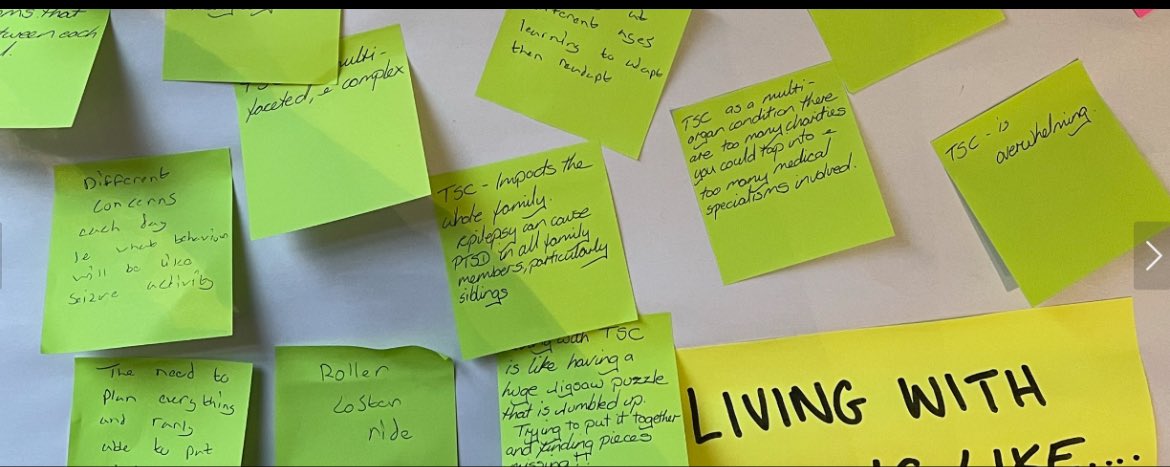 that
tween each
multi-
faceted, & complex
ages
learning to adapt
then readapt
TSC as a multi-
organ condition there
are too many charities
you could tap into &
too many medical
specialisms involved.
TSC - is
overwhelming.
Different
concerns
each day
ie what behaviour
will be like
seizure activity
TSC - Impacts the
whole family.
epilepsy can cause
PTSD in all family
members, particularly
siblings
The need to
plan everything
and rarely
able to put
Roller
Coster
ride
with TSC
is like having a
huge jigsaw puzzle
that is jumbled up.
Trying to put it together
and finding pieces
missing!!
LIVING WITH
IS LIKE....